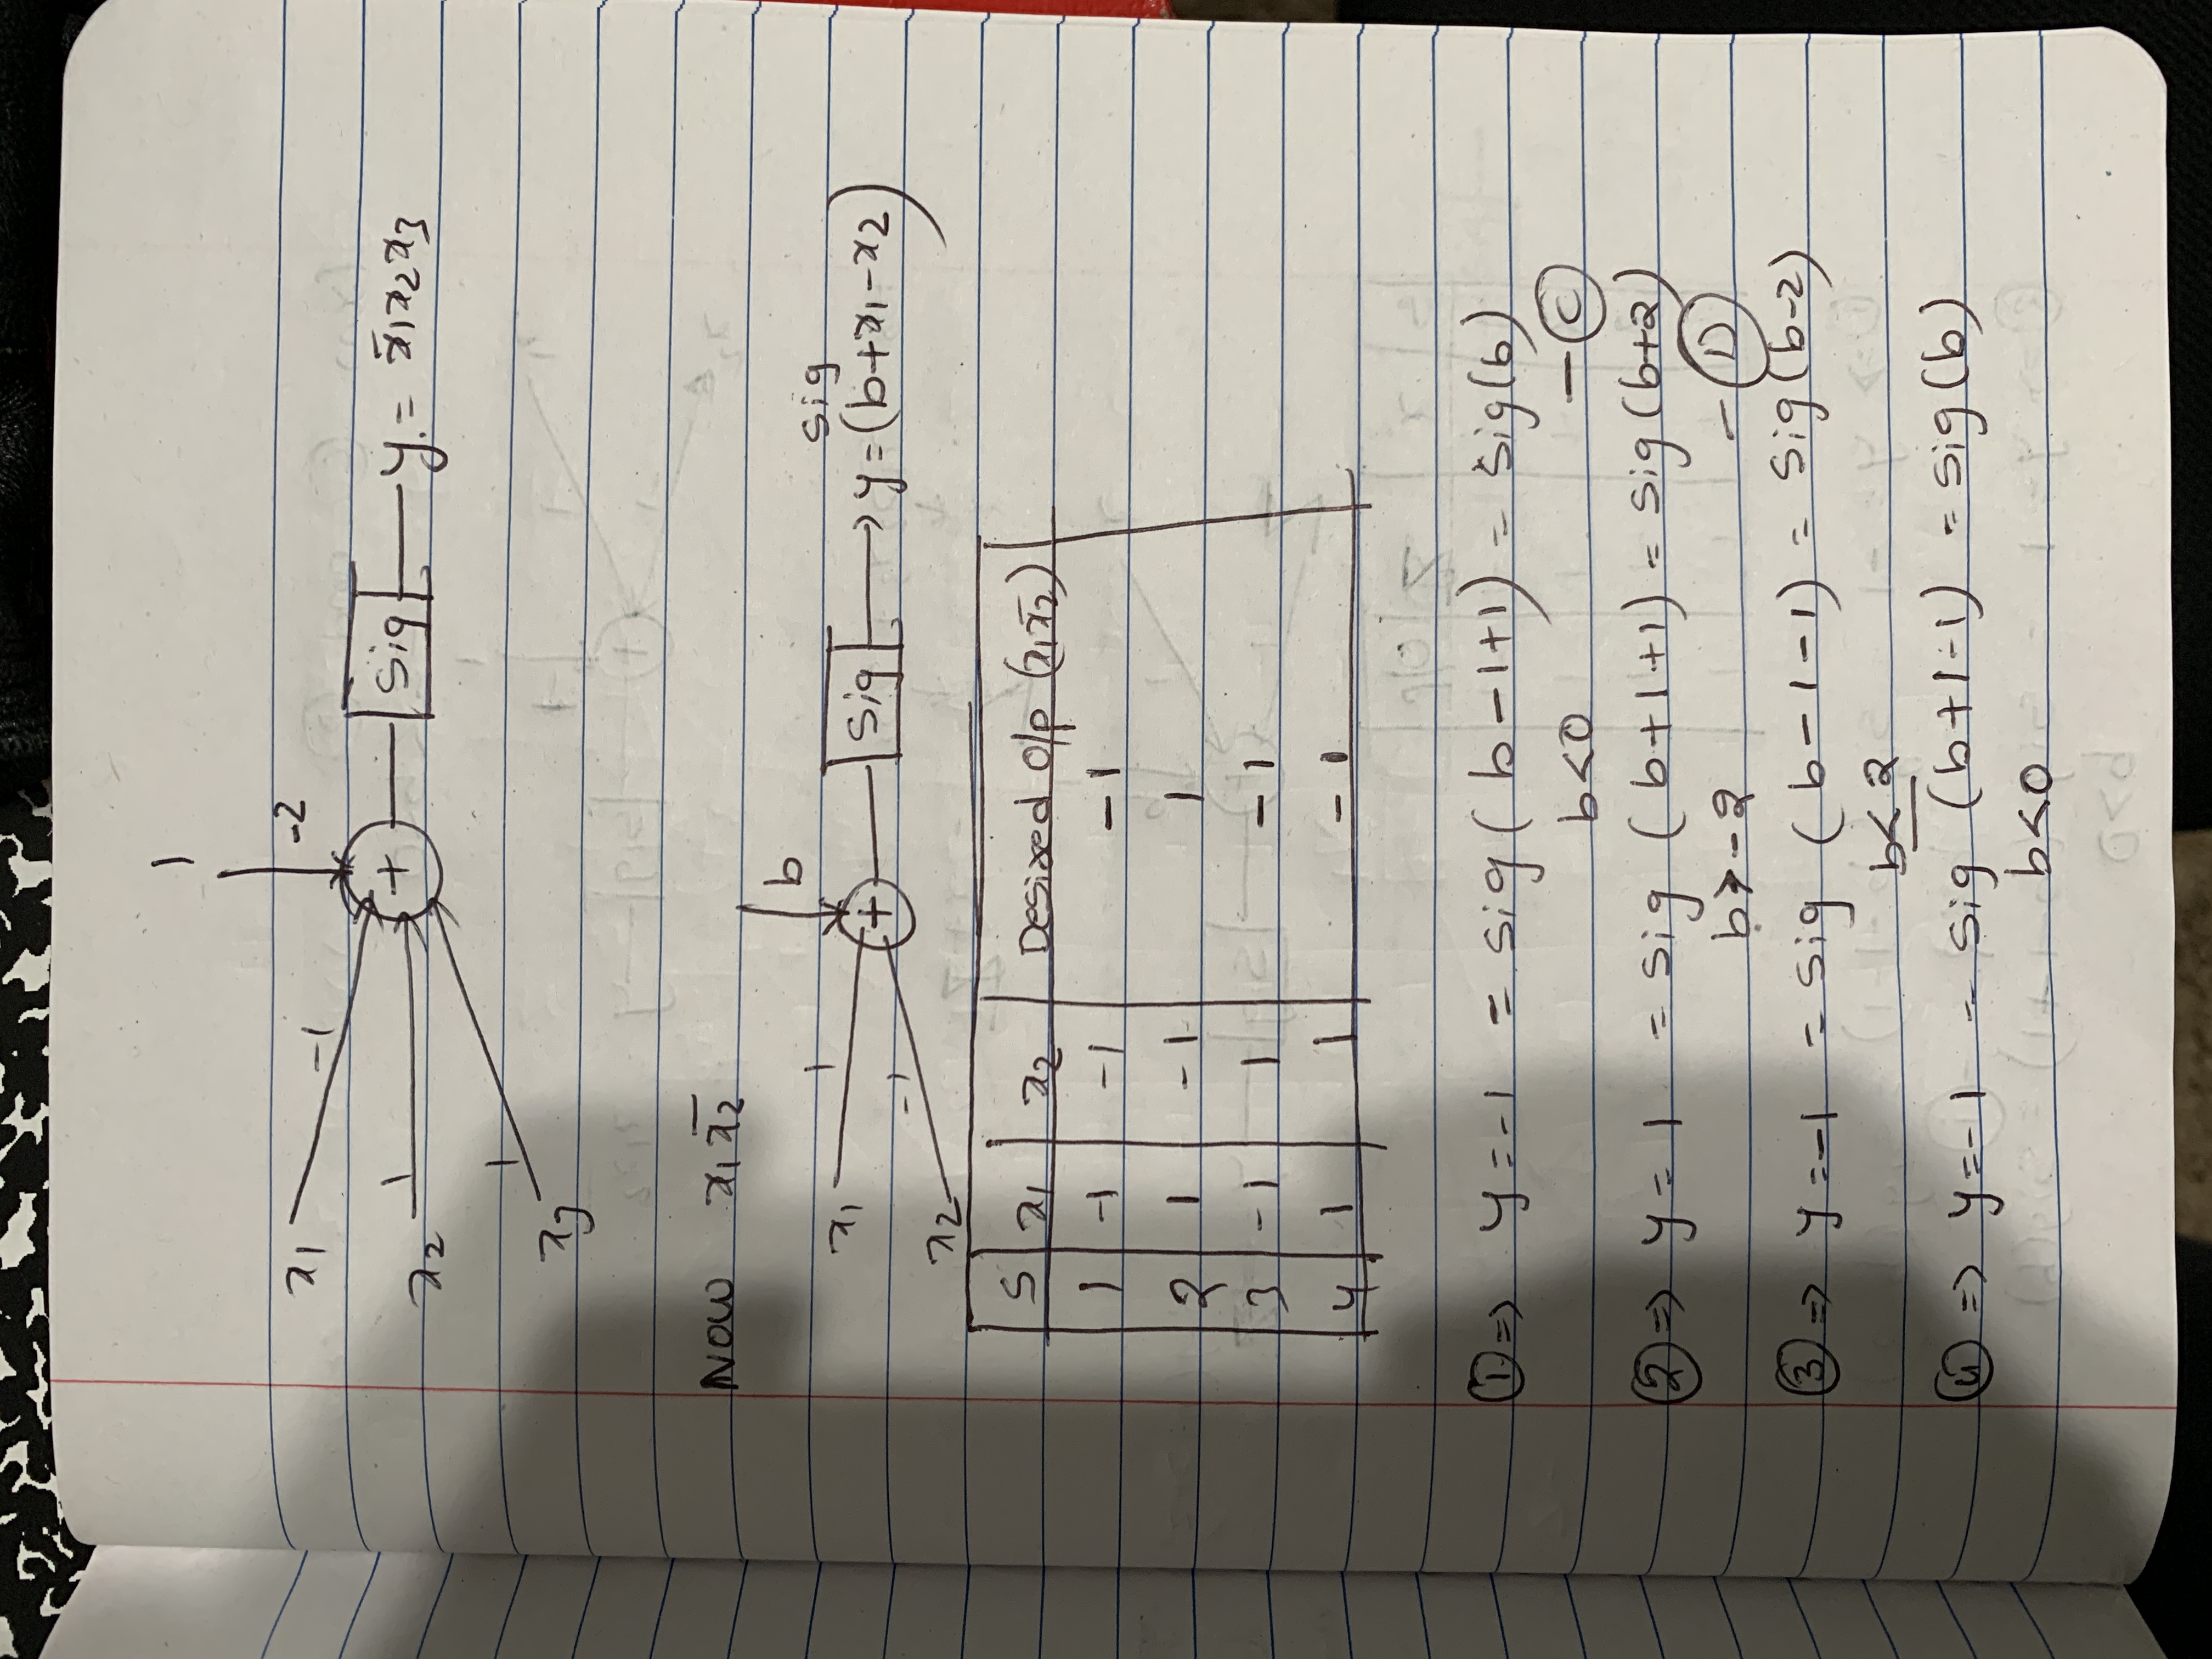 1
-2
x1 -1
+ Sig y = x̄1x2x3
x2 1
x3 1
NOW x1x̄2
b
sig
x1 1
+ Sig → y = (b+x1-x2)
x2 -1
S x1 x2 Desired O/p (x1x̄2)
1 -1 -1 -1
2 1 -1 1
3 -1 1 -1
4 1 1 -1
① => y = -1 = sig( b-1+1) = sig(b)
b<0 - Ⓒ
② => y = 1 = sig (b+1+1) = sig(b+2)
b>-2 - Ⓓ
③ => y = -1 = sig (b-1-1) = sig(b-2)
b<2
④ => y = -1 = sig (b+1-1) = sig(b)
b<0